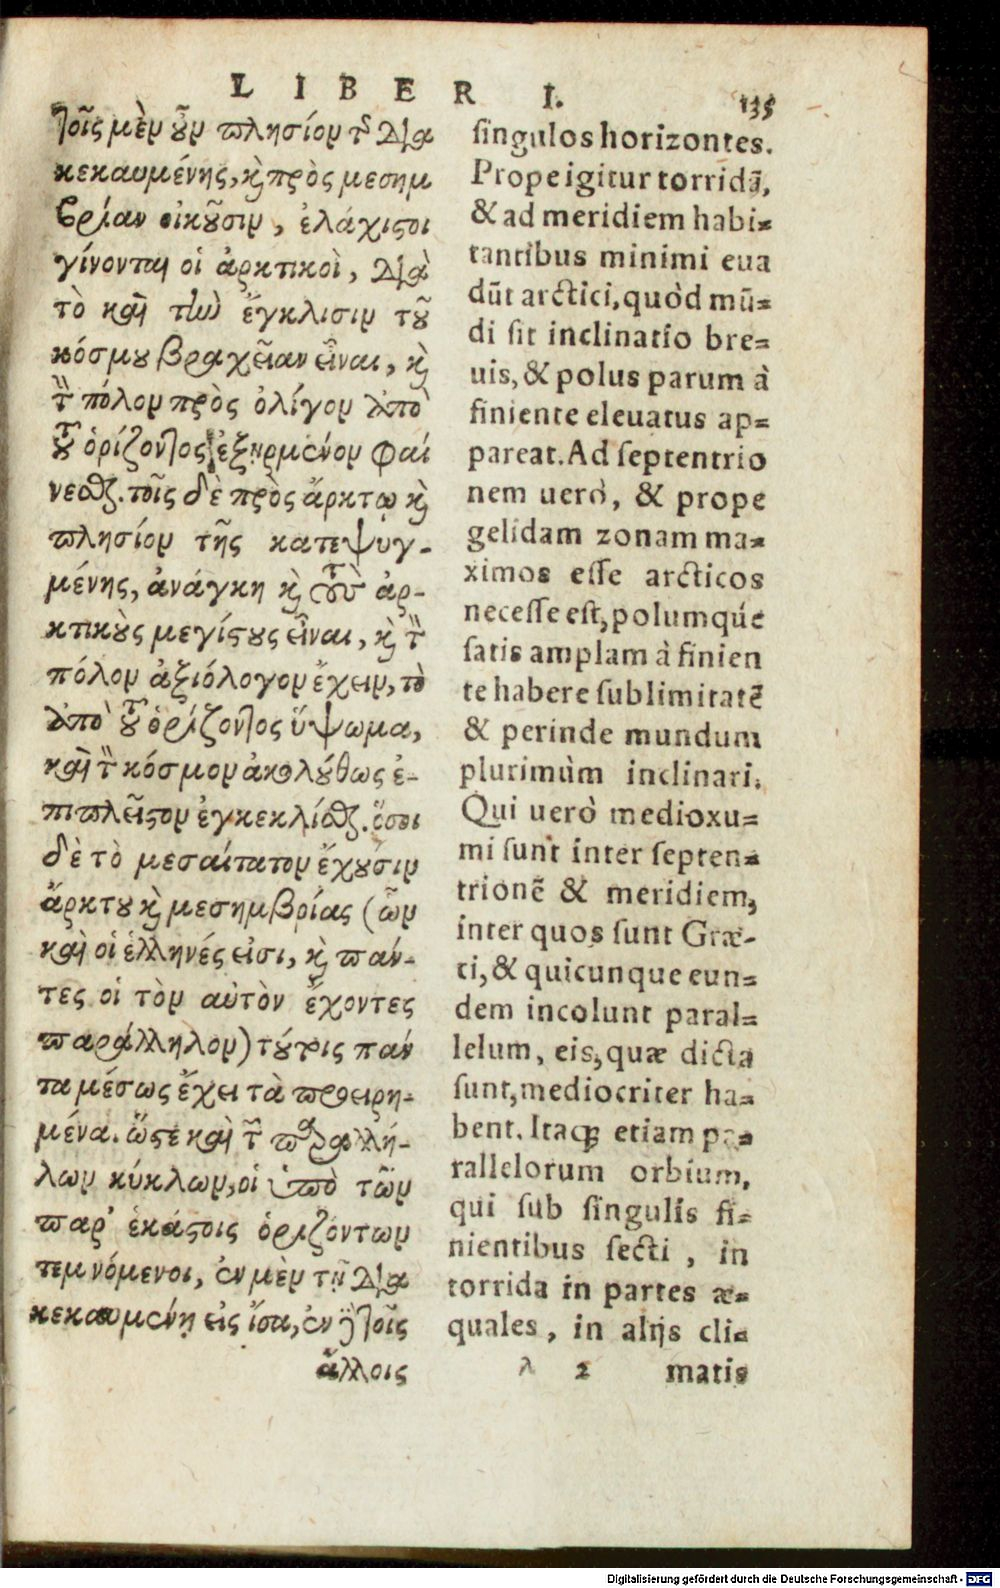 LIBER I. 135
τοῖς μὲν οὖν πλησίον τῆς δια
κεκαυμένης, καὶ πρὸς μεσημ
βρίαν οἰκοῦσιν, ἐλάχιστοι
γίνονται οἱ ἀρκτικοὶ, διὰ
τὸ καὶ τὴν ἔγκλισιν τοῦ
κόσμου βραχεῖαν εἶναι, καὶ
τὸν πόλον πρὸς ὀλίγον ἀπὸ
τοῦ ὁρίζοντος ἐξηρμένον φαί
νεσθαι. τοῖς δὲ πρὸς ἄρκτῳ καὶ
πλησίον τῆς κατεψυγ-
μένης, ἀνάγκη καὶ τοὺς ἀρ-
κτικοὺς μεγίστους εἶναι, καὶ τὸν
πόλον ἀξιόλογον ἔχειν, τὸ
ἀπὸ τοῦ ὁρίζοντος ὕψωμα,
καὶ τὸν κόσμον ἀκολούθως ἐ-
πιπλεῖστον ἐγκεκλίσθαι. ὅσοι
δὲ τὸ μεσαίτατον ἔχουσιν
ἄρκτου καὶ μεσημβρίας (ὧν
καὶ οἱ ἑλληνές εἰσι, καὶ πάν-
τες οἱ τὸν αὐτὸν ἔχοντες
παράλληλον) τούτοις πάν
τα μέσως ἔχει τὰ προειρη-
μένα. ὥστε καὶ τῶν παραλλή-
λων κύκλων, οἱ ὑπὸ τῶν
παρ' ἑκάστοις ὁριζόντων
τεμνόμενοι, ἐν μὲν τῇ δια
κεκαυμένῃ εἰς ἴσα, ἐν δὲ τοῖς
ἄλλοις
singulos horizontes.
Prope igitur torridã,
& ad meridiem habi=
tantibus minimi eua
dũt arctici, quòd mũ=
di sit inclinatio bre=
uis, & polus parum à
finiente eleuatus ap=
pareat. Ad septentrio
nem uerò, & prope
gelidam zonam ma=
ximos esse arcticos
necesse est, polumqúe
satis amplam à finien
te habere sublimitatẽ
& perinde mundum
plurimùm inclinari.
Qui uerò medioxu=
mi sunt inter septen=
trionẽ & meridiem,
inter quos sunt Græ-
ci, & quicunque eun=
dem incolunt paral=
lelum, eis, quæ dicta
sunt, mediocriter ha=
bent. Itaqꝫ etiam pa=
rallelorum orbium,
qui sub singulis fi=
nientibus secti, in
torrida in partes æ=
quales, in alijs cli=
λ 2 matis
Digitalisierung gefördert durch die Deutsche Forschungsgemeinschaft - DFG